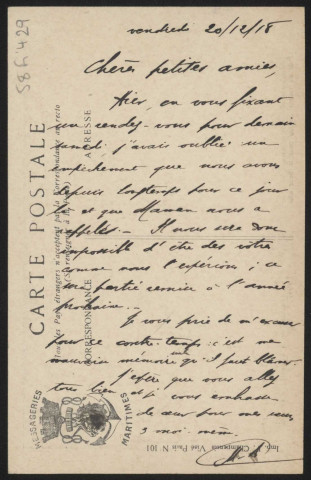 vendredi 20/12/18
Chères petites amies,
Hier, en vous fixant
un rendez-vous pour demain
samedi, j'avais oublié un
empêchement que nous avons
depuis longtemps pour ce jour
et que Maman nous a
rappelé. - Il nous sera donc
impossible d'être des vôtres
comme nous l'espérions ; ce
sera partie remise à l'année
prochaine. -
Je vous prie de m'excuser
pour ce contre-temps : c'est ma
mauvaise mémoire qu'il faut blâmer.
J'espère que vous allez
tous bien et je vous embrasse
de cœur pour mes sœurs
& moi-même.
586429
CARTE POSTALE
Tous les Pays étrangers n'acceptent pas la Correspondance au recto
(Se renseigner à la Poste)
CORRESPONDANCE
ADRESSE
MESSAGERIES
MARITIMES
Visé Paris N. 101